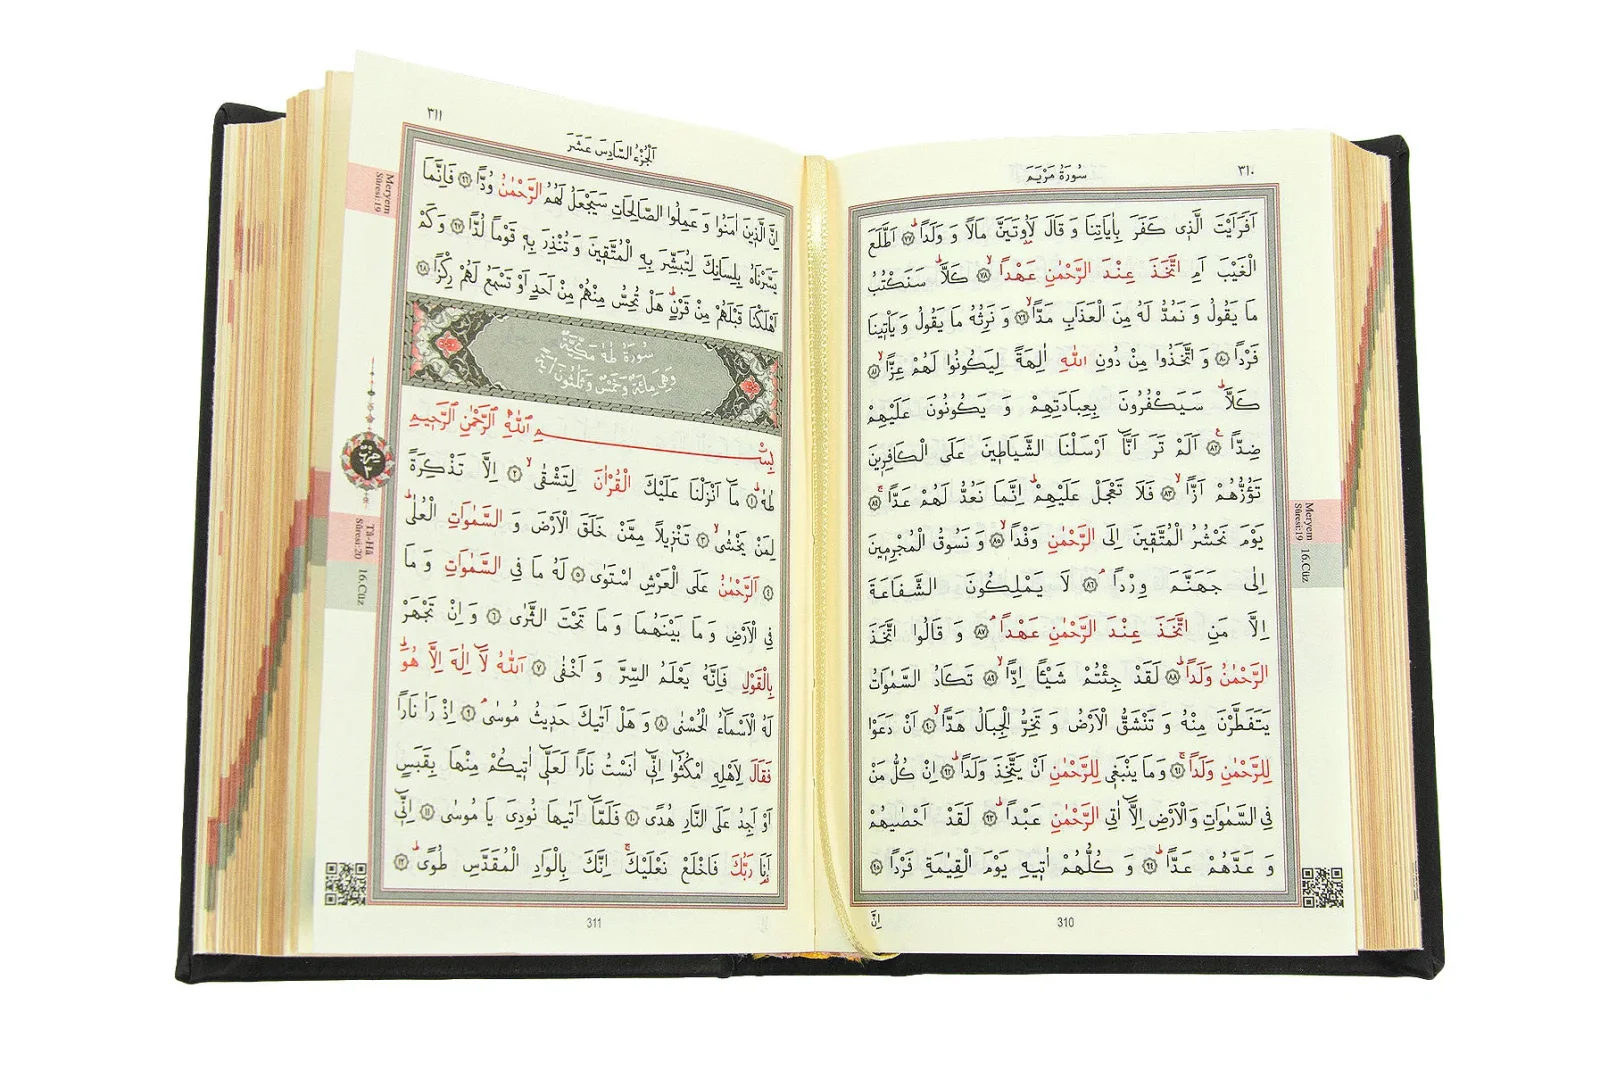 ٣١٠
سُورَةُ مَرْيَمَ
اَفَرَاَيْتَ الَّذٖي كَفَرَ بِاٰيَاتِنَا وَ قَالَ لَاُوتَيَنَّ مَالًا وَ وَلَدًا ﴿٧٧﴾ اَطَّلَعَ
الْغَيْبَ اَمِ اتَّخَذَ عِنْدَ الرَّحْمٰنِ عَهْدًا ﴿٧٨﴾ كَلَّا سَنَكْتُبُ
مَا يَقُولُ وَ نَمُدُّ لَهُ مِنَ الْعَذَابِ مَدًّا ﴿٧٩﴾ وَ نَرِثُهُ مَا يَقُولُ وَ يَاْتٖينَا
فَرْدًا ﴿٨٠﴾ وَ اتَّخَذُوا مِنْ دُونِ اللّٰهِ اٰلِهَةً لِيَكُونُوا لَهُمْ عِزًّا ﴿٨١﴾
كَلَّا سَيَكْفُرُونَ بِعِبَادَتِهِمْ وَ يَكُونُونَ عَلَيْهِمْ
ضِدًّا ﴿٨٢﴾ اَلَمْ تَرَ اَنَّا اَرْسَلْنَا الشَّيَاطٖينَ عَلَى الْكَافِرٖينَ
تَؤُزُّهُمْ اَزًّا ﴿٨٣﴾ فَلَا تَعْجَلْ عَلَيْهِمْ اِنَّمَا نَعُدُّ لَهُمْ عَدًّا ﴿٨٤﴾
يَوْمَ نَحْشُرُ الْمُتَّقٖينَ اِلَى الرَّحْمٰنِ وَفْدًا ﴿٨٥﴾ وَ نَسُوقُ الْمُجْرِمٖينَ
اِلٰى جَهَنَّمَ وِرْدًا ﴿٨٦﴾ لَا يَمْلِكُونَ الشَّفَاعَةَ
اِلَّا مَنِ اتَّخَذَ عِنْدَ الرَّحْمٰنِ عَهْدًا ﴿٨٧﴾ وَ قَالُوا اتَّخَذَ
الرَّحْمٰنُ وَلَدًا ﴿٨٨﴾ لَقَدْ جِئْتُمْ شَيْئًا اِدًّا ﴿٨٩﴾ تَكَادُ السَّمٰوَاتُ
يَتَفَطَّرْنَ مِنْهُ وَ تَنْشَقُّ الْاَرْضُ وَ تَخِرُّ الْجِبَالُ هَدًّا ﴿٩٠﴾ اَنْ دَعَوْا
لِلرَّحْمٰنِ وَلَدًا ﴿٩١﴾ وَ مَا يَنْبَغٖي لِلرَّحْمٰنِ اَنْ يَتَّخِذَ وَلَدًا ﴿٩٢﴾ اِنْ كُلُّ مَنْ
فِي السَّمٰوَاتِ وَ الْاَرْضِ اِلَّا اٰتِي الرَّحْمٰنِ عَبْدًا ﴿٩٣﴾ لَقَدْ اَحْصٰيهُمْ
وَ عَدَّهُمْ عَدًّا ﴿٩٤﴾ وَ كُلُّهُمْ اٰتٖيهِ يَوْمَ الْقِيٰمَةِ فَرْدًا ﴿٩٥﴾
اِنَّ
310
Meryem
Sûresi:19
16.Cüz
٣١١
اَلْجُزْءُ السَّادِسَ عَشَرَ
اِنَّ الَّذٖينَ اٰمَنُوا وَ عَمِلُوا الصَّالِحَاتِ سَيَجْعَلُ لَهُمُ الرَّحْمٰنُ وُدًّا ﴿٩٦﴾ فَاِنَّمَا
يَسَّرْنَاهُ بِلِسَانِكَ لِتُبَشِّرَ بِهِ الْمُتَّقٖينَ وَ تُنْذِرَ بِهٖ قَوْمًا لُدًّا ﴿٩٧﴾ وَ كَمْ
اَهْلَكْنَا قَبْلَهُمْ مِنْ قَرْنٍ هَلْ تُحِسُّ مِنْهُمْ مِنْ اَحَدٍ اَوْ تَسْمَعُ لَهُمْ رِكْزًا ﴿٩٨﴾
سُورَةُ طٰهٰ مَكِّيَّةٌ
وَهِيَ مِائَةٌ وَ خَمْسٌ وَ ثَلٰثُونَ اٰيَةً
بِسْمِ اللّٰهِ الرَّحْمٰنِ الرَّحٖيمِ
طٰهٰ ﴿١﴾ مَا اَنْزَلْنَا عَلَيْكَ الْقُرْاٰنَ لِتَشْقٰى ﴿٢﴾ اِلَّا تَذْكِرَةً
لِمَنْ يَخْشٰى ﴿٣﴾ تَنْزٖيلًا مِمَّنْ خَلَقَ الْاَرْضَ وَ السَّمٰوَاتِ الْعُلٰى
﴿٤﴾ اَلرَّحْمٰنُ عَلَى الْعَرْشِ اسْتَوٰى ﴿٥﴾ لَهُ مَا فِي السَّمٰوَاتِ وَ مَا
فِي الْاَرْضِ وَ مَا بَيْنَهُمَا وَ مَا تَحْتَ الثَّرٰى ﴿٦﴾ وَ اِنْ تَجْهَرْ
بِالْقَوْلِ فَاِنَّهُ يَعْلَمُ السِّرَّ وَ اَخْفٰى ﴿٧﴾ اَللّٰهُ لَا اِلٰهَ اِلَّا هُوَ
لَهُ الْاَسْمَاءُ الْحُسْنٰى ﴿٨﴾ وَ هَلْ اَتٰيكَ حَدٖيثُ مُوسٰى ﴿٩﴾ اِذْ رَاٰ نَارًا
فَقَالَ لِاَهْلِهِ امْكُثُوا اِنّٖي اٰنَسْتُ نَارًا لَعَلّٖي اٰتٖيكُمْ مِنْهَا بِقَبَسٍ
اَوْ اَجِدُ عَلَى النَّارِ هُدًى ﴿١٠﴾ فَلَمَّا اَتٰيهَا نُودِيَ يَا مُوسٰى ﴿١١﴾ اِنّٖي
اَنَا رَبُّكَ فَاخْلَعْ نَعْلَيْكَ اِنَّكَ بِالْوَادِ الْمُقَدَّسِ طُوًى ﴿١٢﴾
311
Meryem
Sûresi:19
Tâ-Hâ
Sûresi:20
16.Cüz